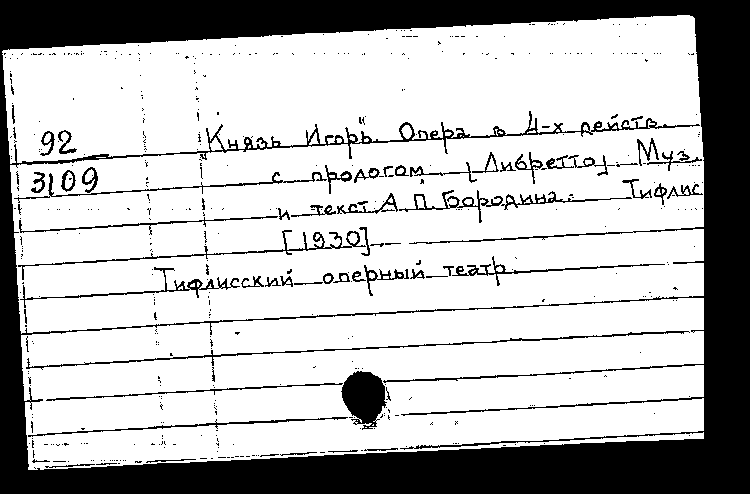 92
3109
"Князь Игорь". Опера в 4-х действ.
с прологом. [Либретто]. Муз.
и текст А. П. Бородина. Тифлис
[1930].
Тифлисский оперный театр.